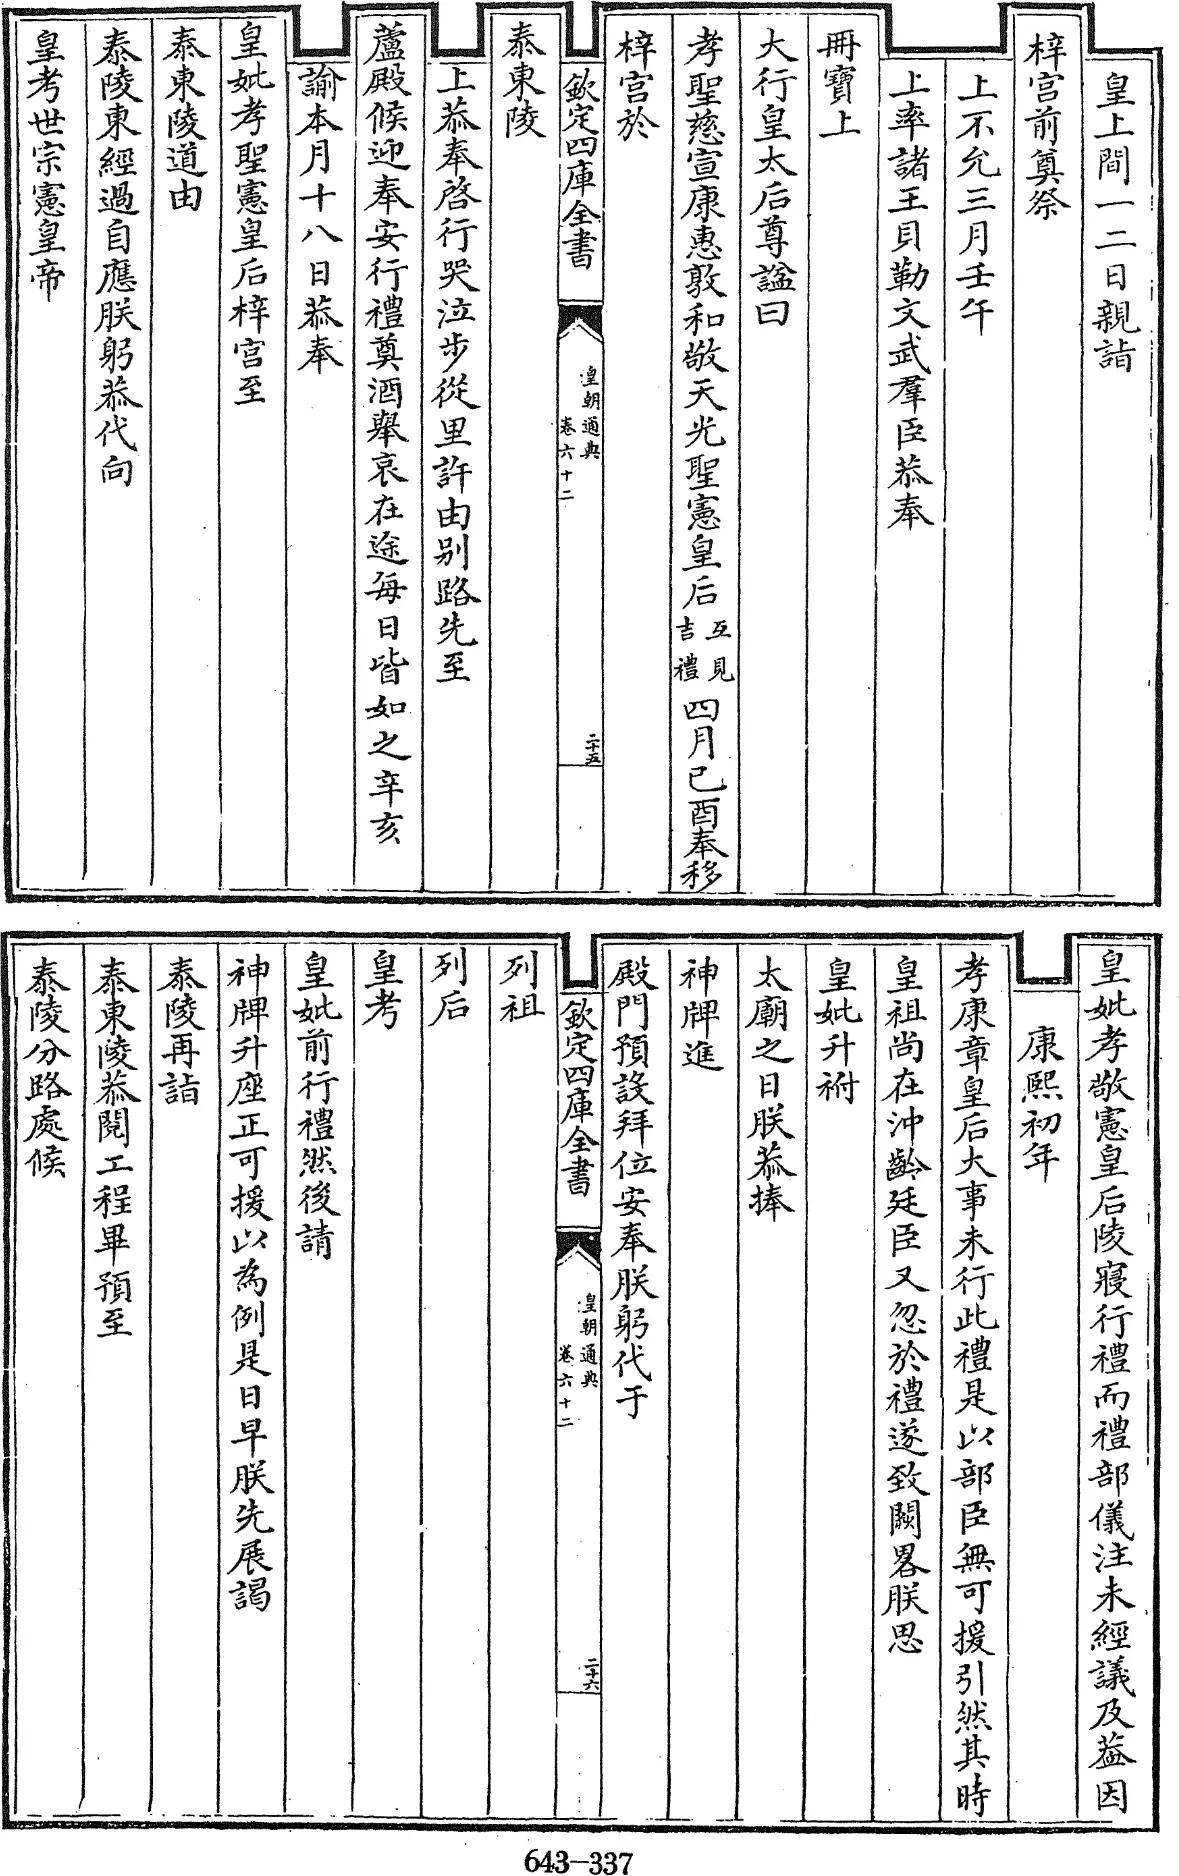 皇上間一二日親詣
梓宫前奠祭
上不允三月壬午
上率諸王貝勒文武羣臣恭奉
冊寶上
大行皇太后尊諡曰
孝聖慈宣康惠敦和敬天光聖憲皇后互見吉禮四月己酉奉移
梓宫於
欽定四庫全書
皇朝通典
卷六十二
二十五
泰東陵
上恭奉啓行哭泣步從里許由别路先至
蘆殿候迎奉安行禮奠酒舉哀在途每日皆如之辛亥
諭本月十八日恭奉
皇妣孝聖憲皇后梓宫至
泰東陵道由
泰陵東經過自應朕躬恭代向
皇考世宗憲皇帝
皇妣孝敬憲皇后陵寢行禮而禮部儀注未經議及葢因
康熙初年
孝康章皇后大事未行此禮是以部臣無可援引然其時
皇祖尚在沖齡廷臣又忽於禮遂致闕畧朕思
皇妣升祔
太廟之日朕恭捧
神牌進
殿門預設拜位安奉朕躬代于
欽定四庫全書
皇朝通典
卷六十二
二十六
列祖
列后
皇考
皇妣前行禮然後請
神牌升座正可援以為例是日早朕先展謁
泰陵再詣
泰東陵恭閱工程畢預至
泰陵分路處候
643-337